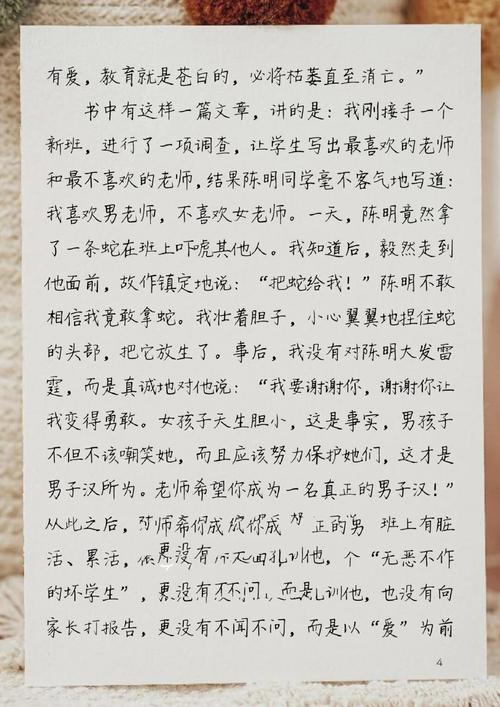 有爱，教育就是苍白的，必将枯萎直至消亡。”
书中有这样一篇文章，讲的是：我刚接手一个
新班，进行了一项调查，让学生写出最喜欢的老师
和最不喜欢的老师，结果陈明同学毫不客气地写道：
我喜欢男老师，不喜欢女老师。一天，陈明竟然拿
了一条蛇在班上吓唬其他人。我知道后，毅然走到
他面前，故作镇定地说：“把蛇给我！”陈明不敢
相信我竟敢拿蛇。我壮着胆子，小心翼翼地捏住蛇
的头部，把它放生了。事后，我没有对陈明大发雷
霆，而是真诚地对他说：“我要谢谢你，谢谢你让
我变得勇敢。女孩子天生胆小，这是事实，男孩子
不但不该嘲笑她，而且应该努力保护她们，这才是
男子汉所为。老师希望你成为一名真正的男子汉！”
从此之后，师希你成你成正的男 班上有脏
活、累活，更没有训他，个“无恶不作
的坏学生”，更没有不不问，而是训他，也没有向
家长打报告，更没有不闻不问，而是以“爱”为前
4